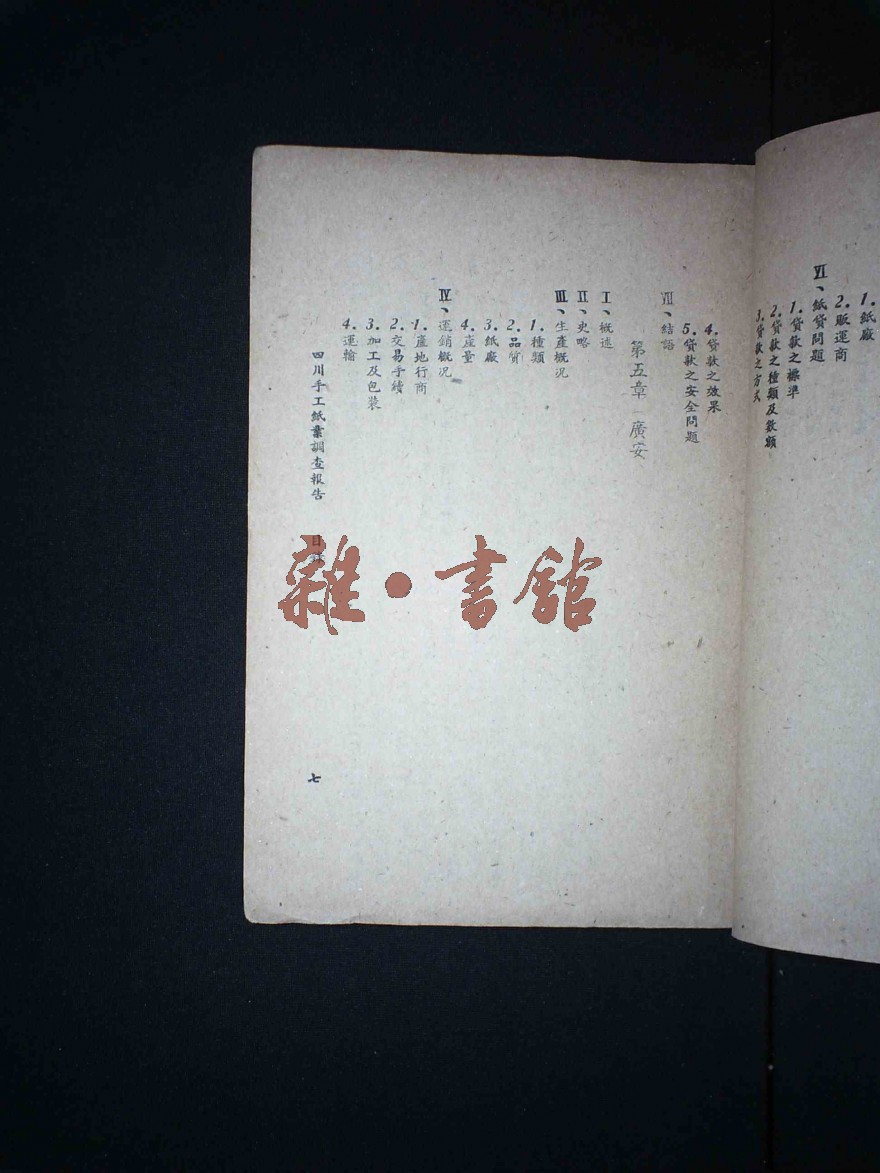 1.紙廠
2.販運商
Ⅵ、紙貸問題
1.貸款之標準
2.貸款之種類及數額
3.貸款之方式
4.貸款之效果
5.貸款之安全問題
Ⅶ、結語
第五章 廣安
Ⅰ、概述
Ⅱ、史略
Ⅲ、生產概况
1.種類
2.品質
3.紙廠
4.產量
Ⅳ、運銷概況
1.產地行商
2.交易手續
3.加工及包裝
4.運輸
四川手工紙業調查報告 目錄
七
雜·書館